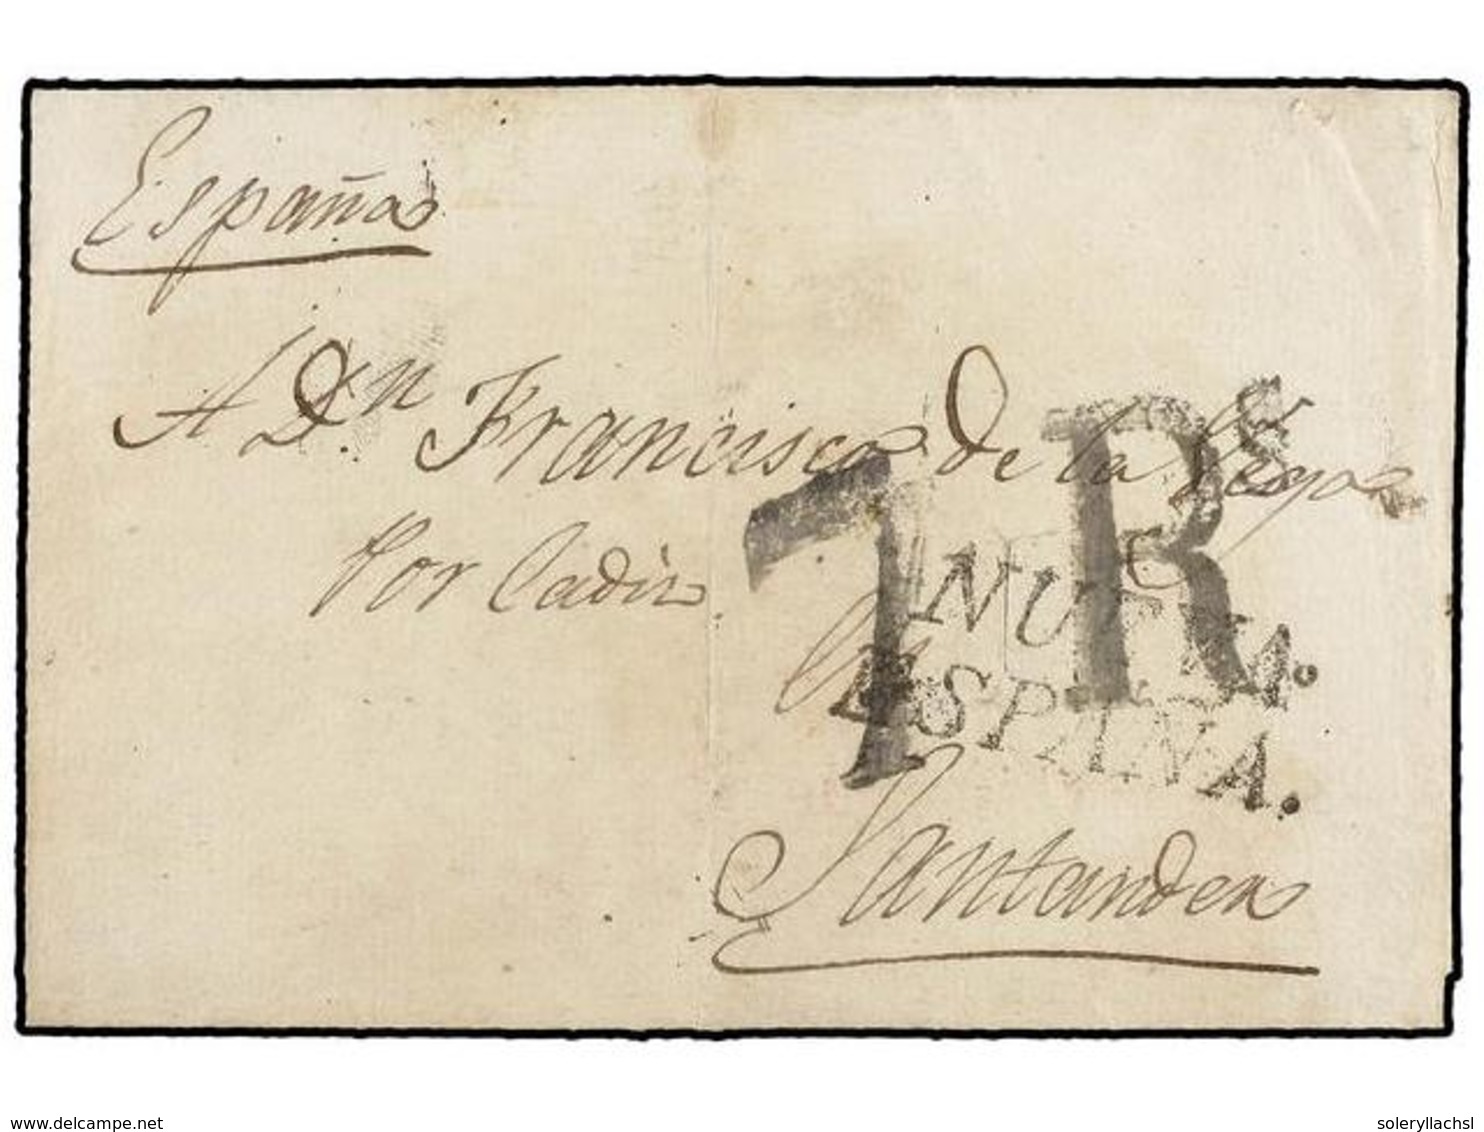 España
A Dn. Francisco de la
Por Cadiz
7 Rs
NUEVA.
ESPAÑA.
Santander
delcampe.net
soleryllachsl